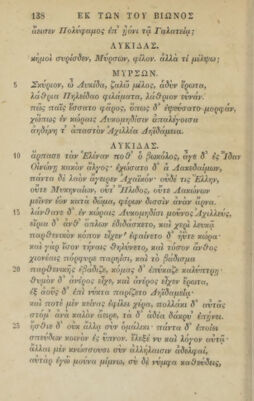 138 ΕΚ ΤΩΝ ΤΟΥ ΒΙΩΝΟΣ
ἄεισεν Πολύφαμος ἐπ' ᾐόνι τᾷ Γαλατείᾳ;
ΛΥΚΙΔΑΣ.
κἠμοὶ συρίσδεν, Μύρσων, φίλον. ἀλλὰ τί μέλψω;
ΜΥΡΣΩΝ.
5 Σκύριον, ὦ Λυκίδα, ζαλῶ μέλος, ἁδὺν ἔρωτα,
λάθρια Πηλεΐδαο φιλάματα, λάθριον εὐνάν.
πῶς παῖς ἕσσατο φᾶρος, ὅπως δ' ἐψεύσατο μορφάν,
χὤπως ἐν κώραις Λυκομηδίσιν ἀπαλέγοισα
ἀηδήνη τ' ἀπαστὸν Ἀχιλλέα Δηϊδάμεια.
ΛΥΚΙΔΑΣ.
10 ἅρπασε τὰν Ἑλέναν ποθ' ὁ βωκόλος, ἆγε δ' ἐς Ἴδαν
Οἰνώνῃ κακὸν ἄλγος· ἐχώσατο δ' ἁ Λακεδαίμων,
πάντα δὲ λαὸν ἄγειρεν Ἀχαϊκόν· οὐδέ τις Ἕλλην,
οὔτε Μυκηναίων, οὔτ' Ἤλιδος, οὔτε Λακώνων
μεῖνεν ἑὸν κατὰ δῶμα, φέρων δισσὶν ἀνὰν ἄρηα.
15 λάνθανε δ' ἐν κώραις Λυκομηδίσι μοῦνος Ἀχιλλεύς,
εἴρια δ' ἀνθ' ὅπλων ἐδιδάσκετο, καὶ χερὶ λευκᾷ
παρθενικὸν κόπον εἶχεν· ἐφαίνετο δ' ἠΰτε κώρα·
καὶ γὰρ ἴσον τήναις θηλύνετο, καὶ τόσον ἄνθος
χιονέαις πόρφυρε παρηίσι, καὶ τὸ βάδισμα
20 παρθενικῆς ἐβάδιζε, κόμας δ' ἐπύκαζε καλύπτρῃ·
θυμὸν δ' ἀνέρος εἶχε, καὶ ἀνέρος εἶχεν ἔρωτα,
ἐξ ἀοῦς δ' ἐπὶ νύκτα παρίζετο Δηϊδαμείᾳ·
καὶ ποτὲ μὲν κείνας ἐφίλει χέρα, πολλάκι δ' αὐτᾶς
στόμ' ἀνὰ καλὸν ἄειρε, τὰ δ' ἁδέα δάκρυ' ἐπῄνει.
25 ἤσθιε δ' οὐκ ἄλλᾳ σὺν ὁμάλικι· πάντα δ' ἐποίει
σπεύδων κοινὸν ἐς ὕπνον. ἔλεξέ νυ καὶ λόγον αὐτᾷ·
ἄλλαι μὲν κνώσσουσι σὺν ἀλλήλαισιν ἀδελφαί,
αὐτὰρ ἐγὼ μούνα μίμνω, σὺ δὲ νύμφα καθεύδεις,